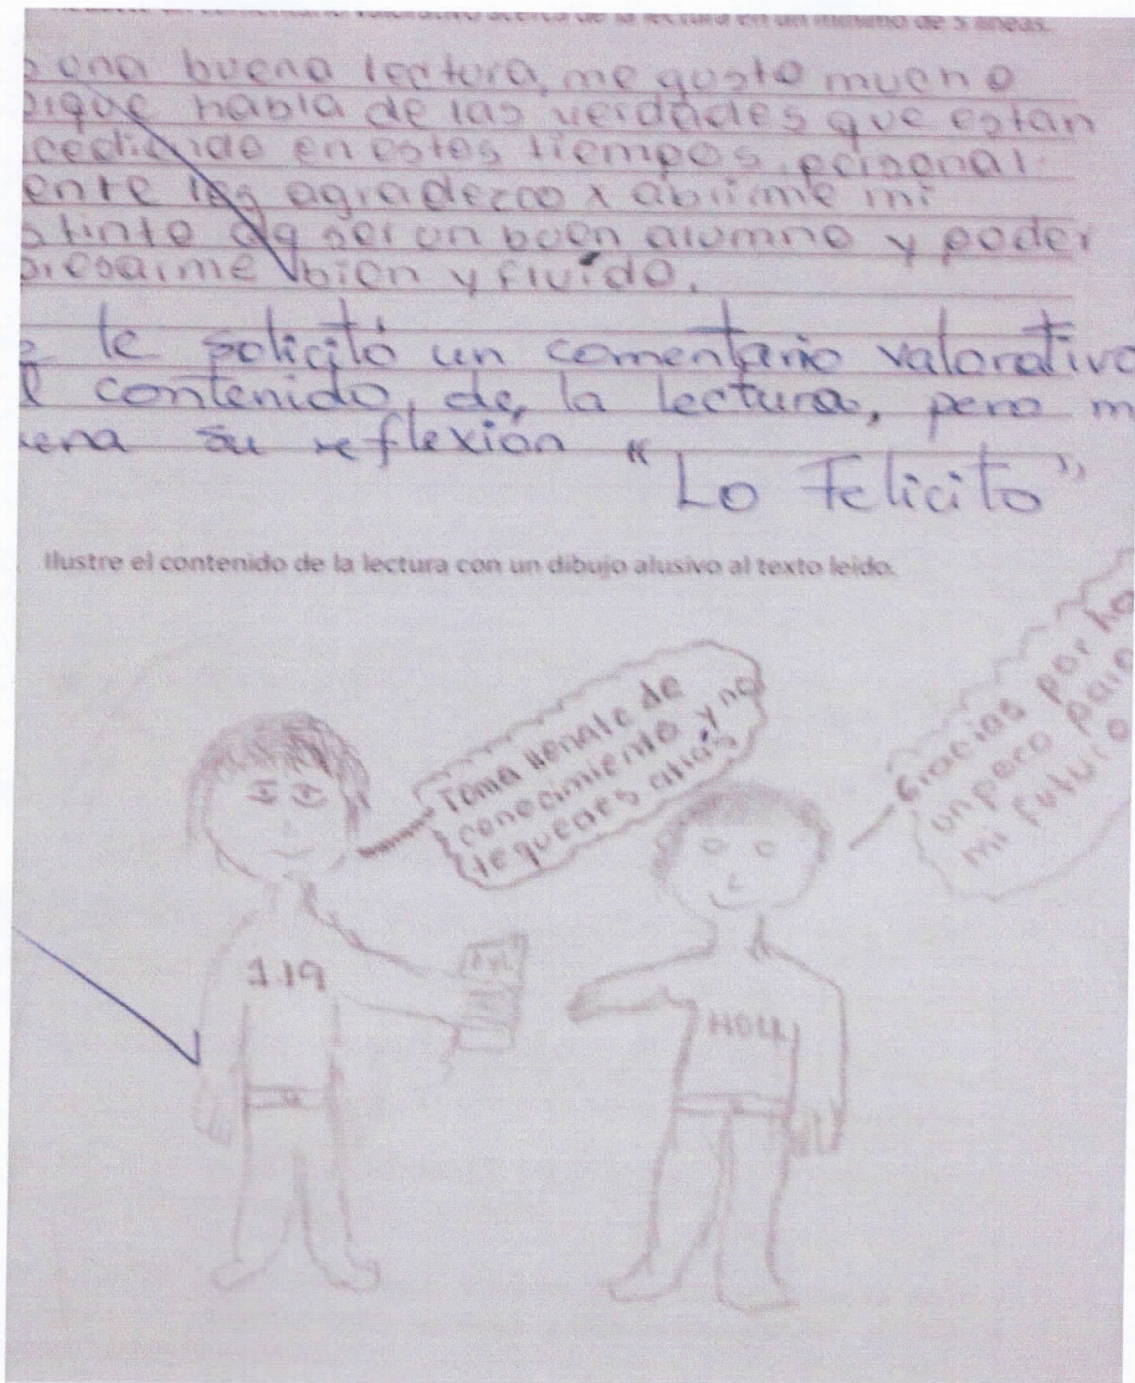 un comentario valorativo acerca de la lectura en un mínimo de 5 líneas.
una buena lectura, me gusto mucho
habla de las verdades que estan
en estos tiempos, personal
ente les agradezco x abrirme mi
de ser un buen alumno y poder
bien y fluído.
te solicitó un comentario valorativo
contenido, de, la lectura, pero
su reflexión "
Lo Felicito"
Ilustre el contenido de la lectura con un dibujo alusivo al texto leído.
Toma llenate de
conocimiento y no
te quedes atras
Gracias por
un poco para
mi futuro
119